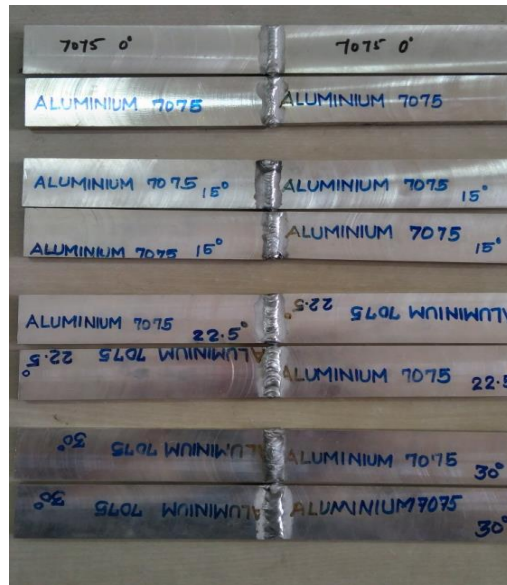 7075 0° 7075 0°
ALUMINIUM 7075 ALUMINIUM 7075
ALUMINIUM 7075 15° ALUMINIUM 7075 15°
ALUMINIUM 7075 15° ALUMINIUM 7075 15°
ALUMINIUM 7075 22.5° ALUMINIUM 7075 22.5°
ALUMINIUM 7075 22.5° ALUMINIUM 7075 22.5
ALUMINIUM 7075 30° ALUMINIUM 7075 30°
ALUMINIUM 7075 30° ALUMINIUM 7075 30°